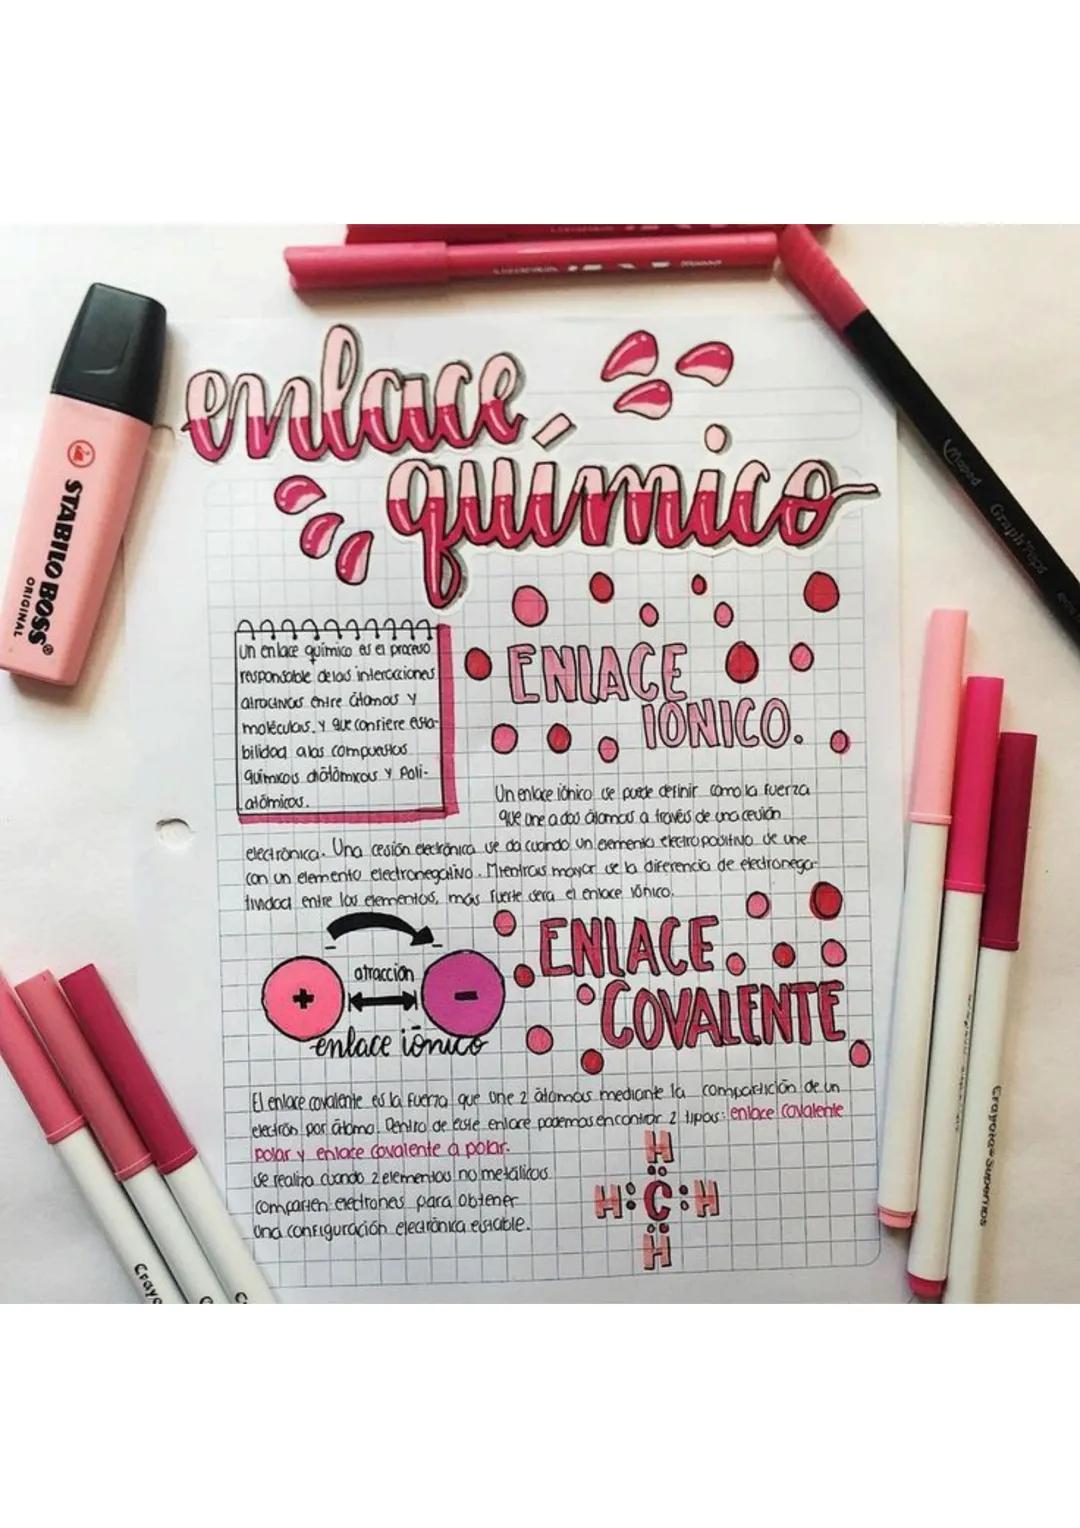 enlace
químico
Un enlace químico es el proceso
responsable de las interacciones
atractivas entre átomos y
moléculas, y que confiere esta-
bilidad a los compuestos
químicos diatómicos y Poli-
atómicos.
ENLACE
IÓNICO.
Un enlace iónico se puede definir como la fuerza
que une a dos átomos a través de una cesión
electrónica. Una cesión electrónica se da cuando un elemento electropositivo se une
con un elemento electronegativo. Mientras mayor se la diferencia de electronega-
tividad entre los elementos, más fuerte sera el enlace iónico.
atracción
+
-
enlace iónico
ENLACE
COVALENTE
El enlace covalente es la fuerza que une 2 átomos mediante la compartición de un
electrón por átomo. Dentro de este enlace podemos encontrar 2 tipos: enlace covalente
polar y enlace covalente a polar.
se realiza cuando 2 elementos no metálicos
comparten electrones para obtener
una configuración electrónica estable.
H
H:C:H
H
STABILO BOSS®
ORIGINAL
Maped
Maped Graph'Peps
Crayola Supertips
Crayo
C
C